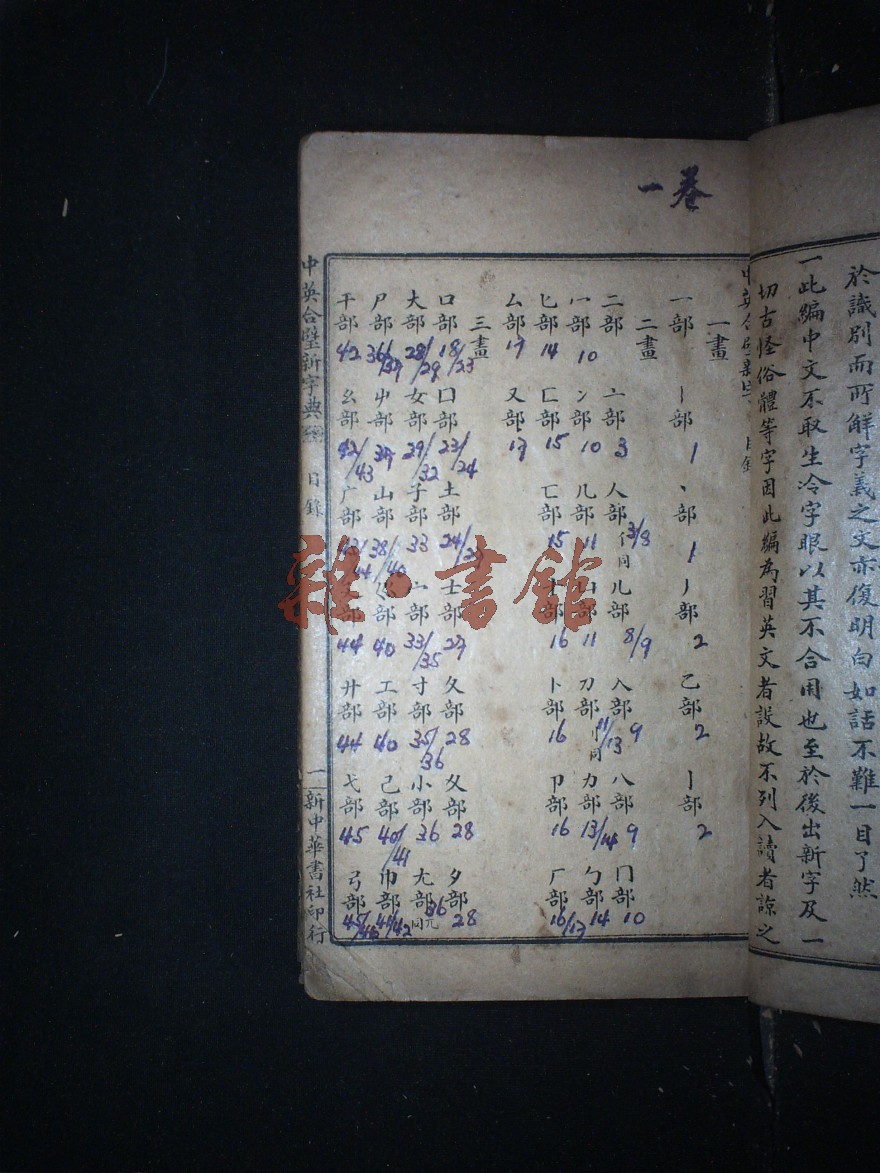 於識別而所解字義之文亦復明白如話不難一目了然
一此編中文不取生冷字眼以其不合用也至於後出新字及一
切古怪俗體等字因此編為習英文者設故不列入讀者諒之
卷一
一畫
一部 丨部 1 丶部 1 丿部 2 乙部 2 亅部 2
二畫
二部 亠部 3 人部 亻同 3/8 儿部 8/9 入部 9 八部 9 冂部 10
冖部 10 冫部 10 几部 11 凵部 11 刀部 刂同 11/13 力部 13/14 勹部 14
匕部 14 匚部 15 匸部 15 十部 16 卜部 16 卩部 16 厂部 16/17
厶部 17 又部 17
三畫
口部 18/23 囗部 23/24 土部 24/27 士部 27 夂部 28 夊部 28 夕部 28
大部 28/29 女部 29/32 子部 33 宀部 33/35 寸部 35/36 小部 36 尢部 兀同 36
尸部 36/37 屮部 37 山部 38/40 巛部 40 工部 40 己部 40/41 巾部 41/42
干部 42 幺部 42/43 广部 44 廴部 44 廾部 44 弋部 45 弓部 45/46
中英合璧新字典 目錄 一 新中華書社印行
雜·書館